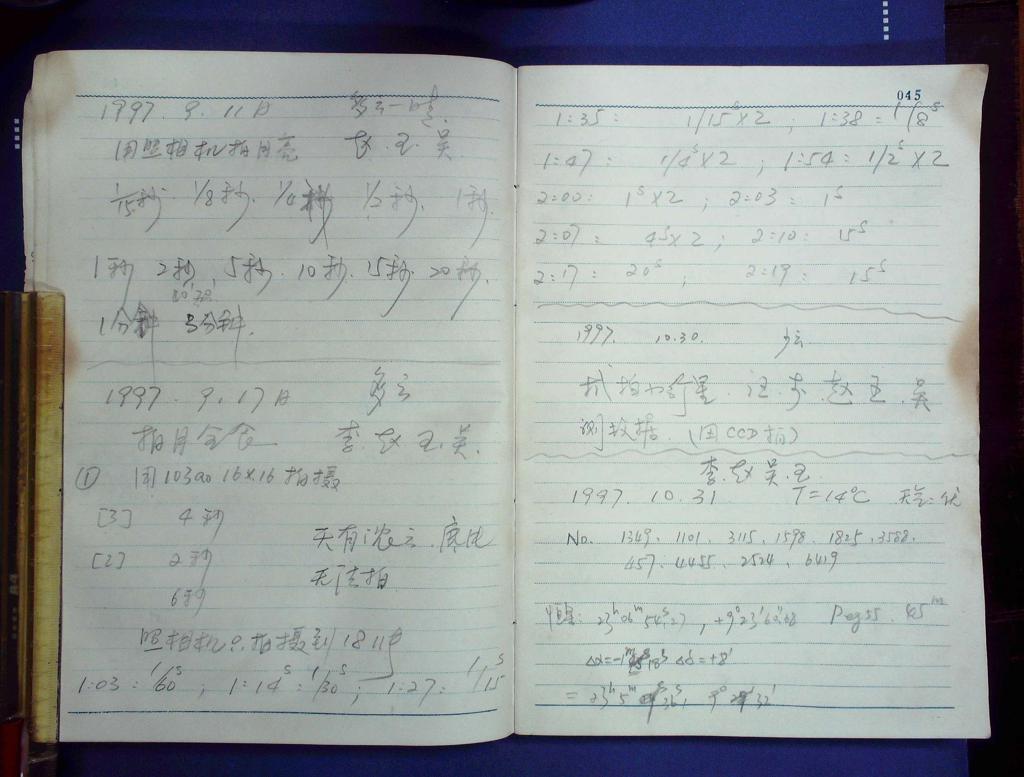 1997. 9. 11日 多云-晴.
用照相机拍月亮 赵. 王. 吴.
1/15秒. 1/8秒. 1/4秒 1/2秒. 1秒.
1秒 2秒. 5秒. 10秒. 15秒. 20秒.
1分钟 3分钟.
1997. 9. 17日 多云
拍月全食 李. 赵. 王. 吴.
① 用103a0 16×16拍摄
[3] 4秒
天有浓云. 底片
[2] 2秒
无法拍
6秒
照相机只拍摄到18
1:03: 1/60s ; 1:14: 1/30s ; 1:27: 1/15s
045
1:35: 1/15s×2 ; 1:38: 1/8s
1:47: 1/4s×2 ; 1:54: 1/2s×2
2:00: 1s×2 ; 2:03: 1s
2:07: 4s×2 ; 2:10: 15s
2:17: 20s ; 2:19: 15s
1997. 10.30. 少云
试拍小行星. 汪. 李. 赵. 王. 吴
测数据. (用CCD拍)
李. 赵. 吴. 王
1997. 10. 31 T=14℃ 天气:优
No. 1349. 1101. 3115. 1598. 1825. 3588.
457. 4455. 2524. 6419
23h06m54s27, +9°23′ Peg55.
Δα=-1m18s Δδ=+8′
= 23h5m36s, 9°32′